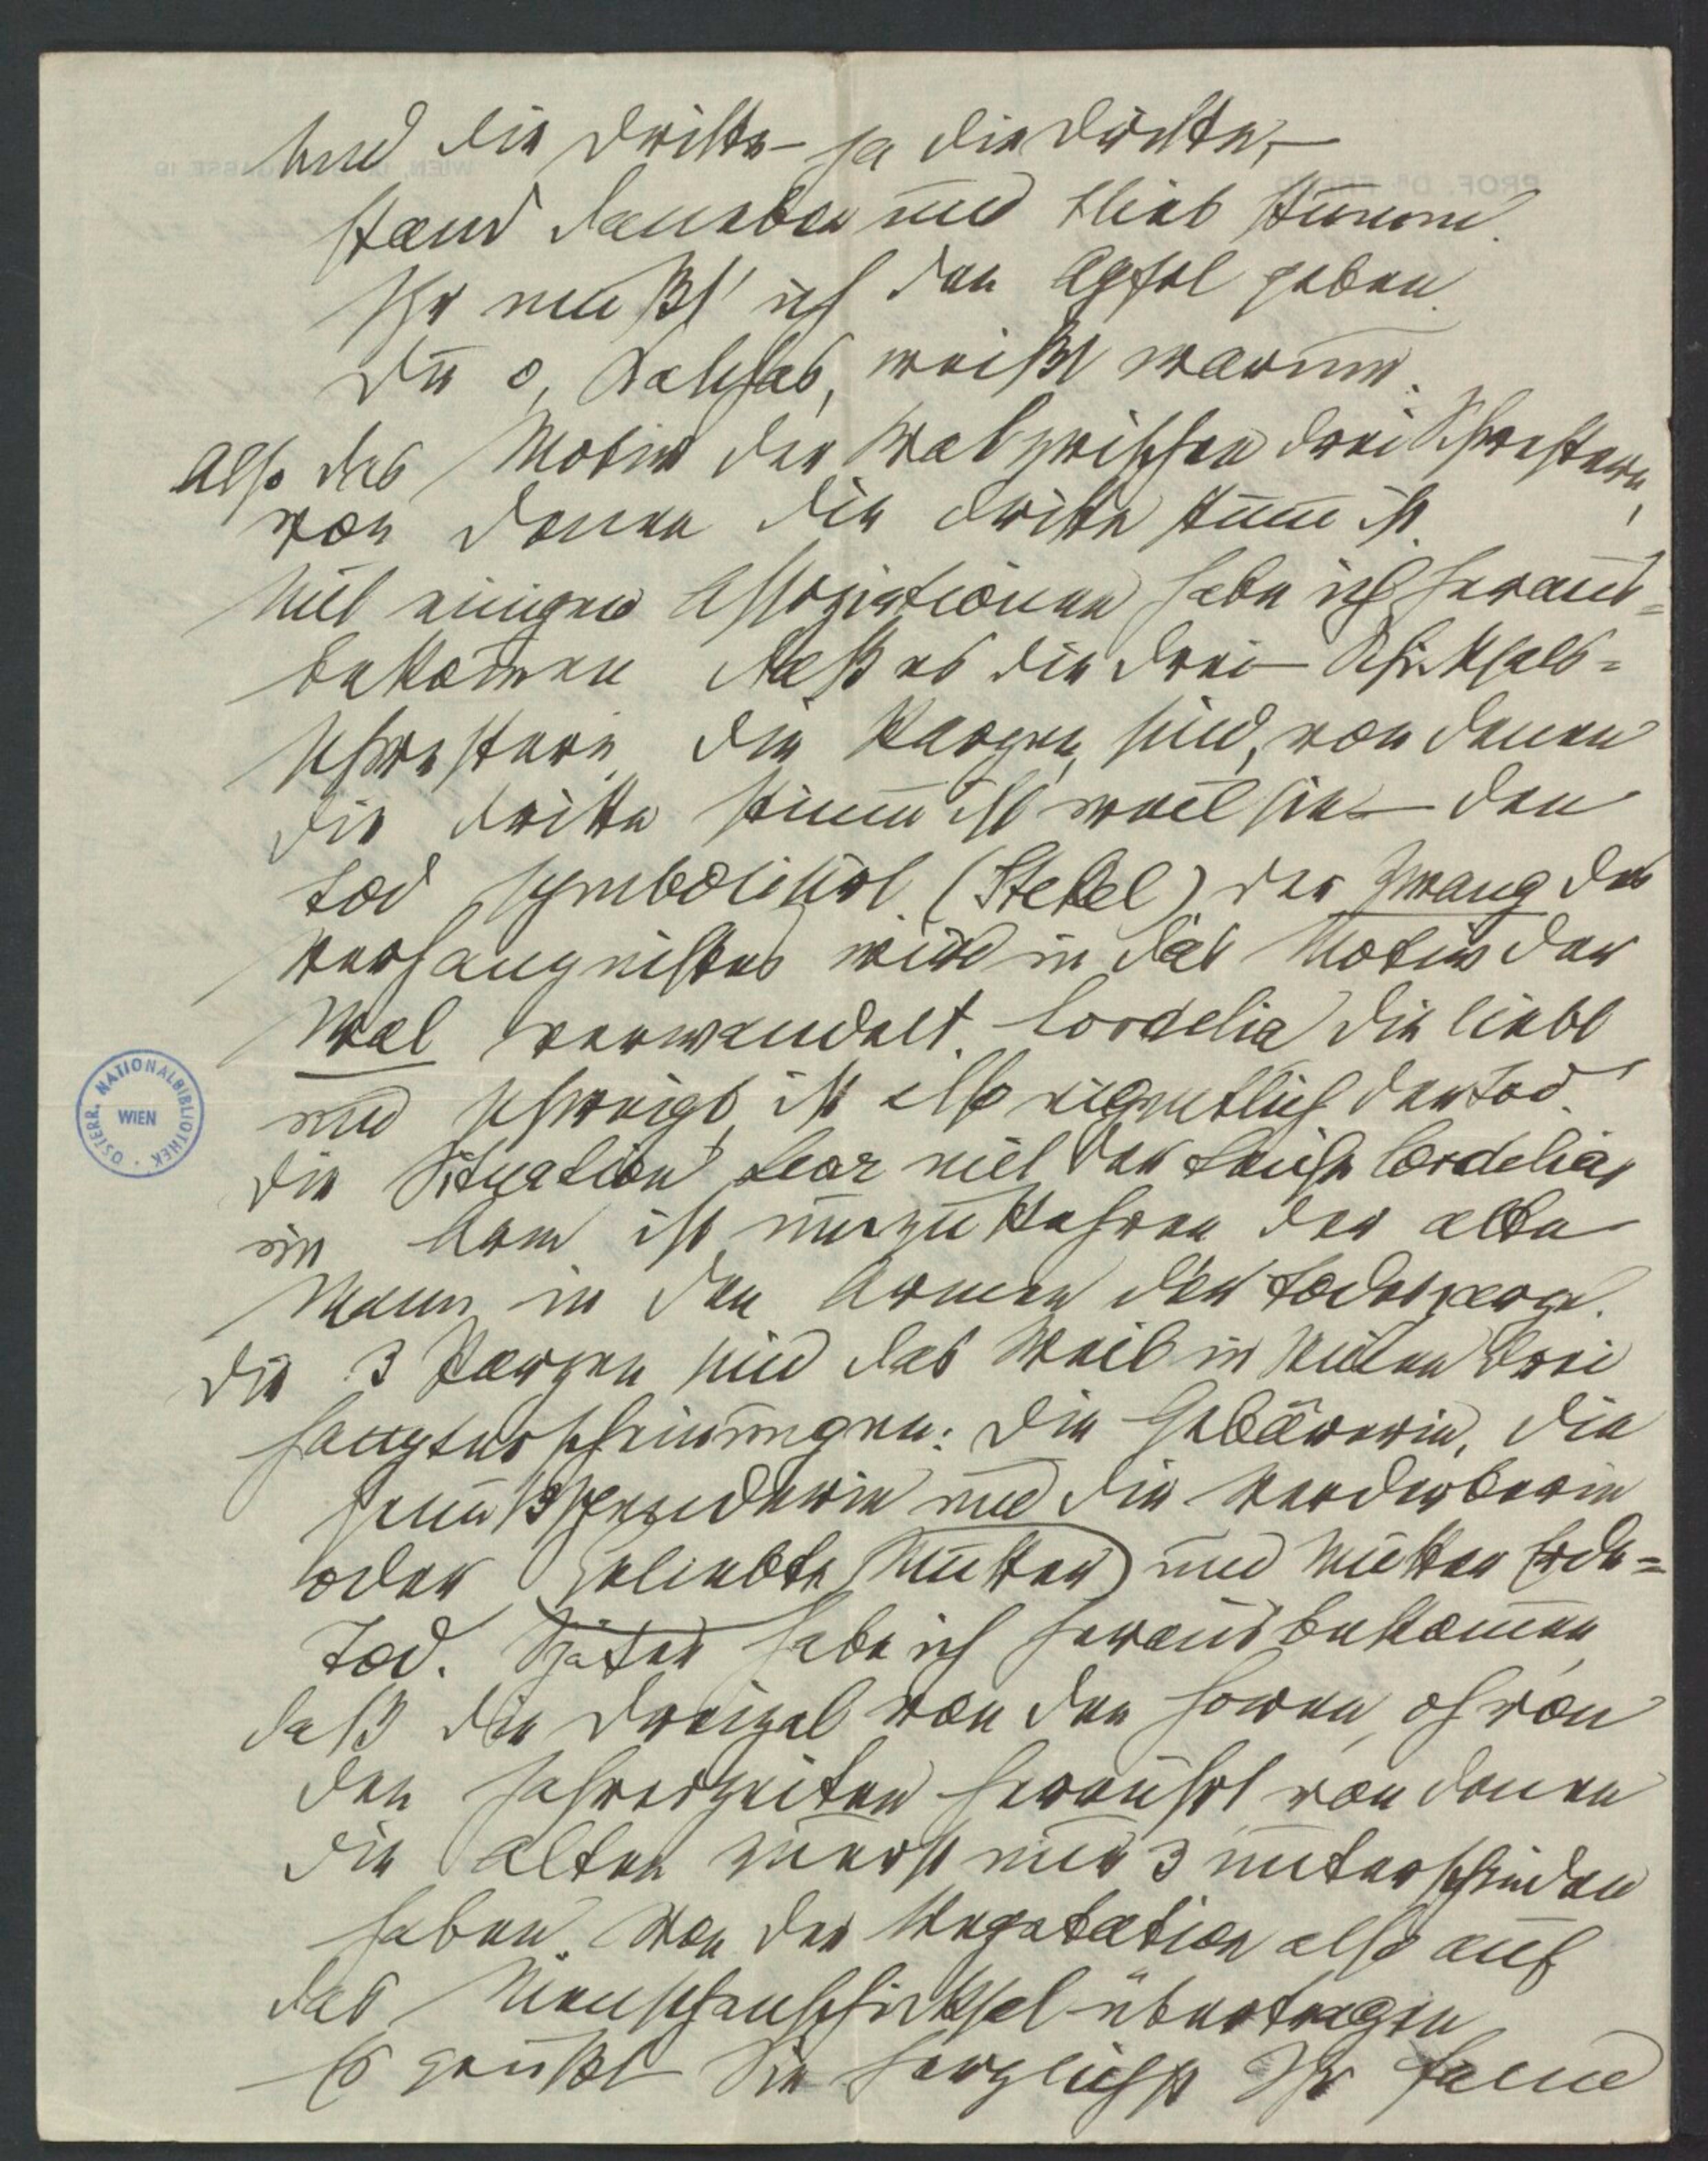 Und die Dritte – ja die Dritte, –
stand daneben und blieb stumm.
Ihr mußt' ich den Apfel geben.
Du o, Kalchas, weißt warum.
Also das Motiv der Wal zwischen drei Schwestern,
von denen die dritte stumm ist.
Mit einigen Assoziationen habe ich heraus=
bekommen daß es die drei Schicksals=
schwestern, die Parzen, sind, von denen
die dritte stumm ist weil sie den
Tod symbolisirt (Stekel) Der Zwang des
Verhängnißes wird in das Motiv der
Wal verwandelt. Cordelia die liebt
und schweigt, ist also eigentlich der Tod.
Die Situation Lear mit der Leiche Cordelias
im Arm ist umzukehren der alte
Mann in den Armen der Todesparze.
Die 3 Parzen sind das Weib in seinen drei
Haupterscheinungen: Die Gebärerin, die
Genußspenderin und die Verderberin
oder Geliebte Mutter und Mutter Erde=
Tod. Später habe ich herausbekommen
daß die Dreizal von den Horen, oh von
den Jahreszeiten herrührt, von denen
die Alten zuerst nur 3 unterschieden
haben. Von der Vegetation also auf
das Menschenschicksal übertragen
Es grüßt Sie herzlichst Ihr Freud
ÖSTERR. NATIONALBIBLIOTHEK
WIEN